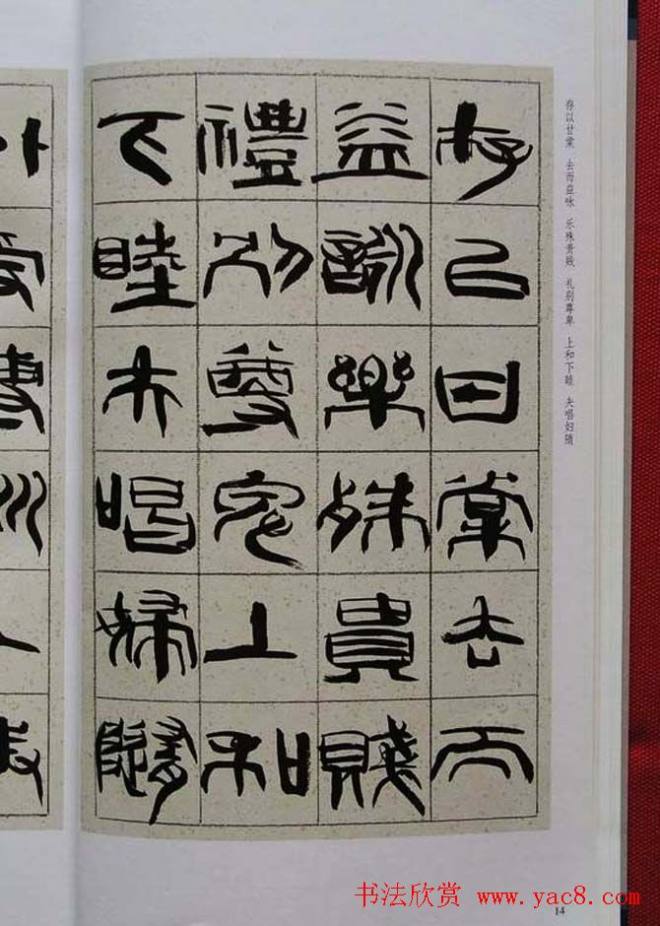 存以甘棠去而
益詠樂殊貴賤
禮別尊卑上和
下睦夫唱婦隨
存以甘棠 去而益咏 乐殊贵贱 礼别尊卑 上和下睦 夫唱妇随
书法欣赏 www.yac8.com
14